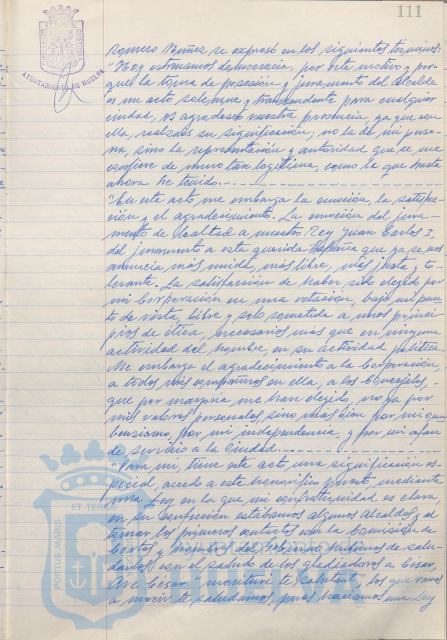 111
AYUNTAMIENTO DE HUELVA
Romero Núñez se expresó en los siguientes términos:
"Hoy estrenamos democracia, por este motivo y por-
que la toma de posesión y juramento del Alcalde
es un acto solemne y trascendente para cualquier
ciudad, os agradezco vuestra presencia, ya que con
ella, realzáis su significación; no la de mi perso-
na, sino la representación y autoridad que se me
confiere de modo tan legítimo, como la que hasta
ahora he tenido.
"En este acto me embarga la emoción, la satisfac-
ción y el agradecimiento. La emoción del jura-
mento de lealtad a nuestro Rey Juan Carlos I,
del juramento a esta querida España que ya se nos
anuncia más unida, más libre, más justa y to-
lerante. La satisfacción de haber sido elegido por
mi Corporación en una votación, bajo mi pun-
to de vista, libre y solo sometida a unos princi-
pios de ética, necesarios más que en ninguna
actividad del hombre, en su actividad política.
Me embarga el agradecimiento a la Corporación,
a todos mis compañeros en ella, a los Concejales
que por mayoría me han elegido, no ya por
mis valores personales sino más bien por mi onu-
bensismo, por mi independencia y por mi afán
de servicio a la Ciudad.
"Para mí, tiene este acto una significación es-
pecial, accedo a este honorífico puesto, mediante
una Ley en la que mi es clara
en su confección estábamos algunos Alcaldes, al
tomar los primeros contactos con la Comisión de
Cortes y miembros del Gobierno hubimos de salu-
darlos con el saludo de los gladiadores a César,
Ave César "morituri te salutant", los que vamos
a morir te saludamos, pues hacíamos una Ley
PORTUS MARIS
ET TERRA